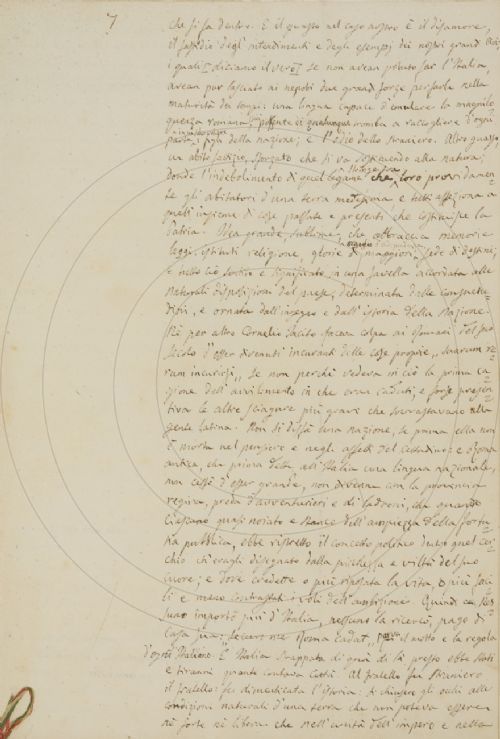 7
che si fa dentro. E il guasto nel caso nostro è il disamore,
il fastidio degl'intendimenti e degli esempj dei nostri grandi
i quali, diciamo il vero, se non avean potuto far l'Italia,
avean pur lasciato ai nepoti due grandi forze per farla nella
maturità dei tempi: una lingua capace d'emulare la magnilo
quenza romana, possente di qualunque tromba a raccogliere d'ogni
parte i figli della nazione; e l'odio dello straniero. Altro guasto,
un abito fattizio, sforzato che si va sostituendo alla natura;
donde l'indebolimento di quel legame che loro provvidamen
te gli abitatori d'una terra medesima, e nell'affezione a
quell'insieme di cose passate e presenti, che costituisce la
patria. Idea grande, sublime, che abbraccia memorie
leggi, istituti religione, glorie di maggiori, sede di destini;
e tutto ciò e significato in una favella accordata alle
naturali disposizioni del paese, determinata dalle consuetu-
dini, e ornata dall'ingegno e dall'istoria della Nazione.
Nè per altro Cornelio Tacito facea colpa ai Romani del suo
secolo d'esser divenuti incuranti delle cose proprie, "suarum re-
rum incuriosi", se non perchè vedeva in ciò la prima ca-
gione dell'avvilimento in che eran caduti; e forse presen-
tiva le altre sciagure più gravi che sovrastavano alla
gente latina. Non si disfà una nazione, se prima ella non
è morta nel pensiero e negli affetti del cittadino; e Roma
antica, che prima dette all'Italia una lingua nazionale,
non cessò d'esser grande, non divenne con la provincia
regina, preda d'avventurieri e di ladroni, che quando
ciascuno quasi noiato e stanco dell'ampiezza della fortu-
na pubblica, ebbe ristretto il concetto politico dentro quel cer-
chio ch'eragli disegnato dalla picchezza e viltà del suo
cuore; e dove credette o più riposata la vita o più faci-
li e meno contrastati i voli dell'ambizione. Quindi a nes-
suno importò più d'Italia, nessuno la ricercò, pago di
casa sua: Roma cadat, fu il motto e la regola
d'ogni Italiano. E Italia strappata di quà di là presto ebbe Stati
e tiranni quante contava città. Al fratello fu straniero
il fratello: fu dimenticata l'istoria: si chiusero gli occhi alle
condizioni naturali d'una terra che non poteva essere
nè forte nè libera che nell'unità dell'impero e nella